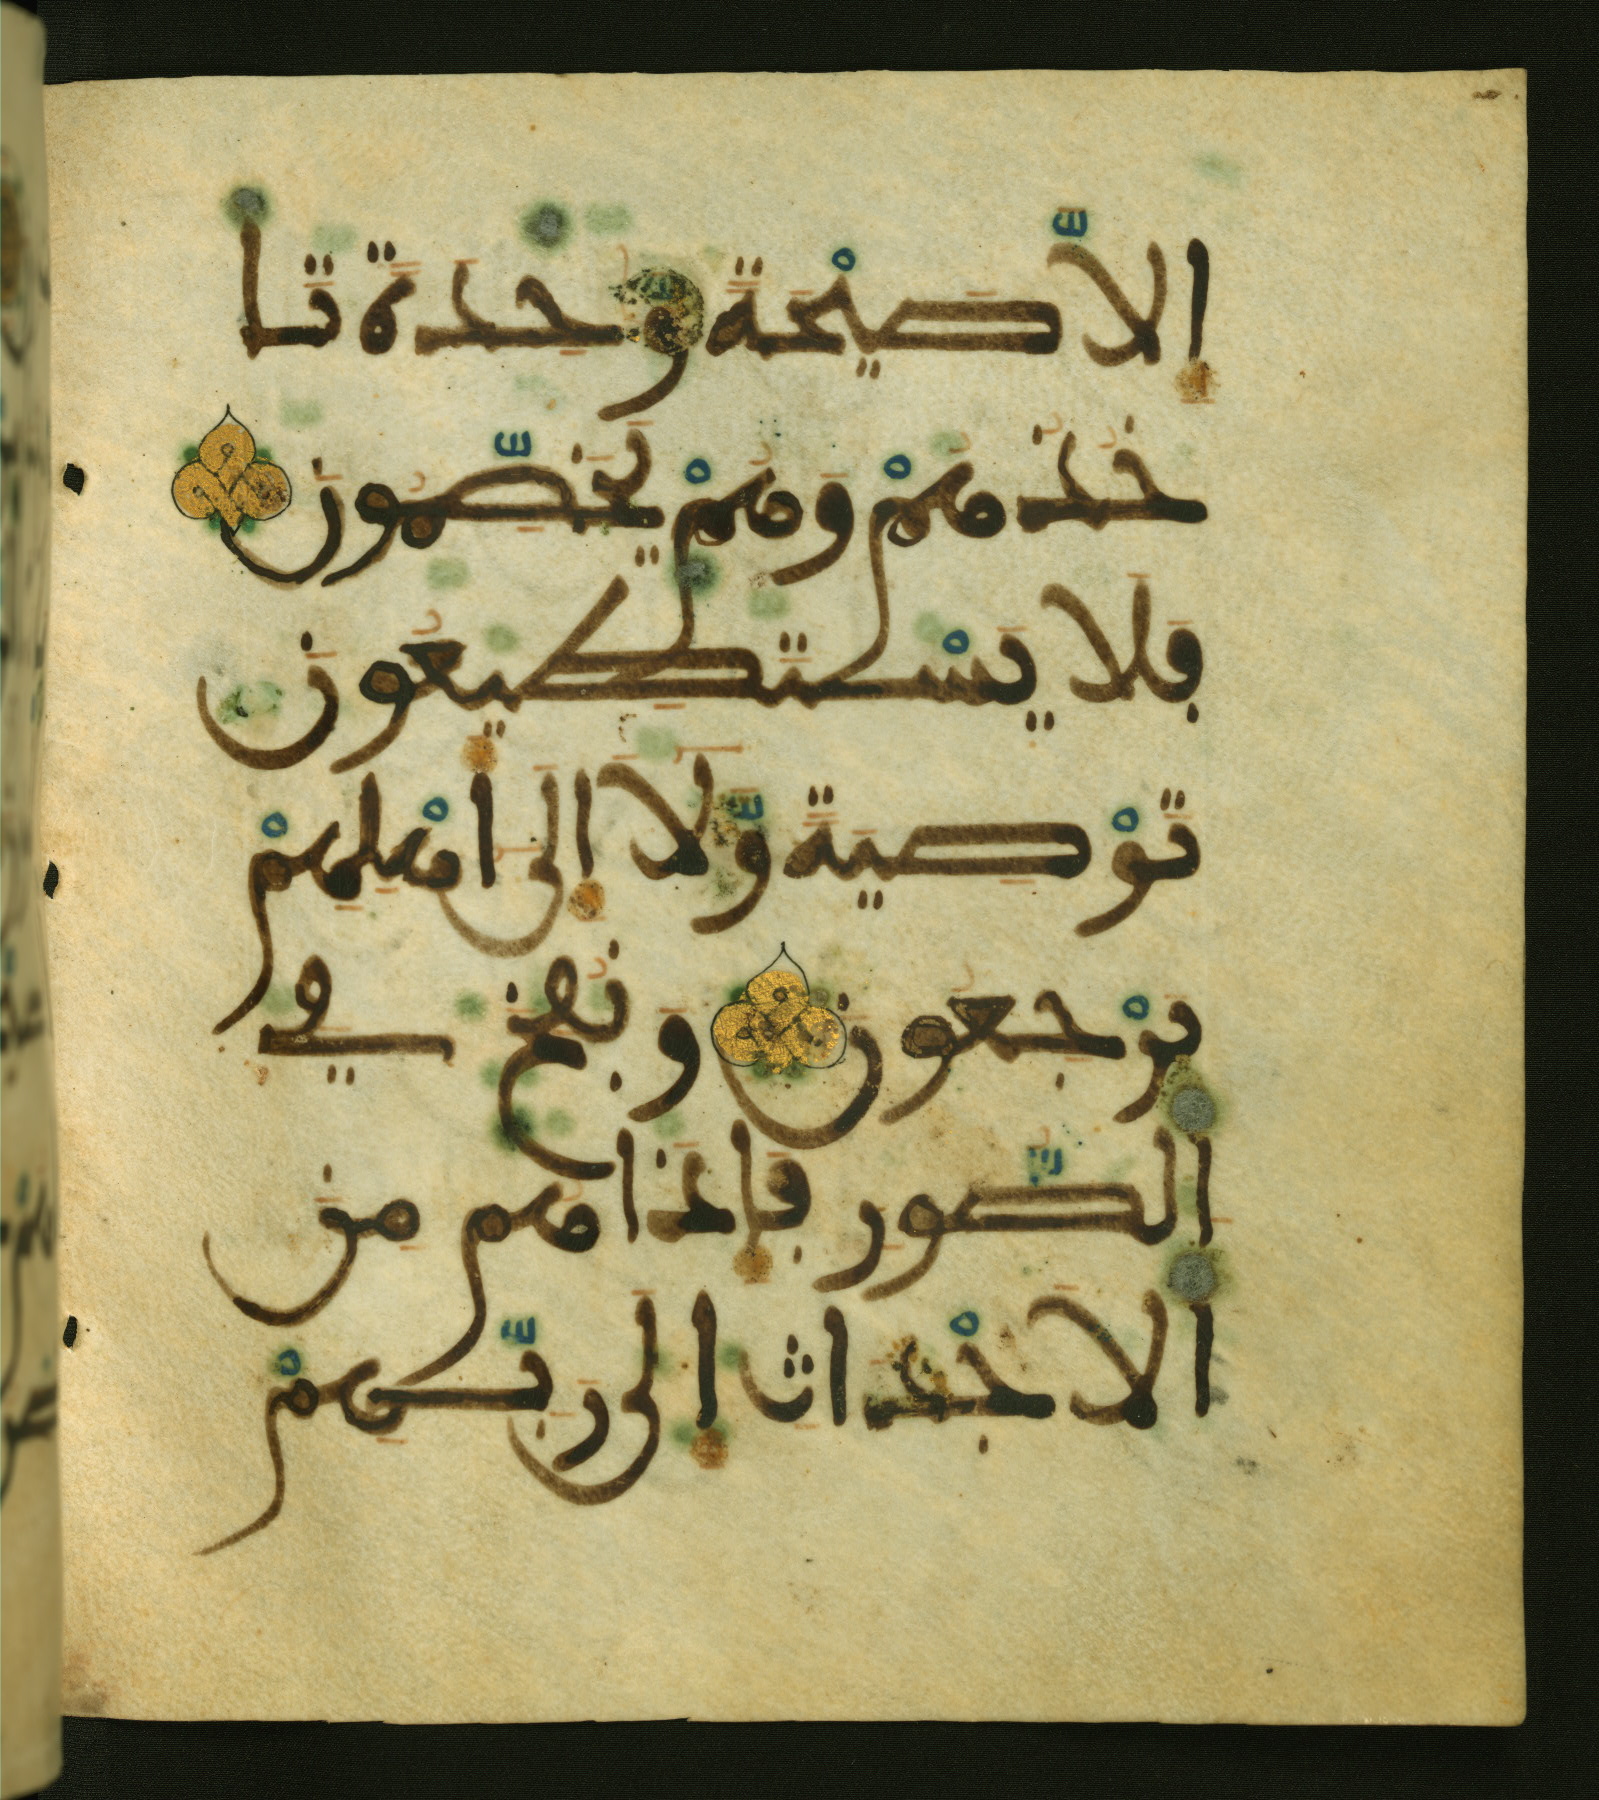 اِلَّا صَيْحَةً وَٰحِدَةً تَا
خُذُهُمْ وَهُمْ يَخَصِّمُونَ
فَلَا يَسْتَطِيعُونَ
تَوْصِيَةً وَّلَآ اِلَىٰٓ أَهْلِهِمْ
يَرْجِعُونَ وَنُفِخَ فِي
الصُّورِ فَإِذَا هُم مِّنَ
الَاجْدَاثِ إِلَىٰ رَبِّهِمْ